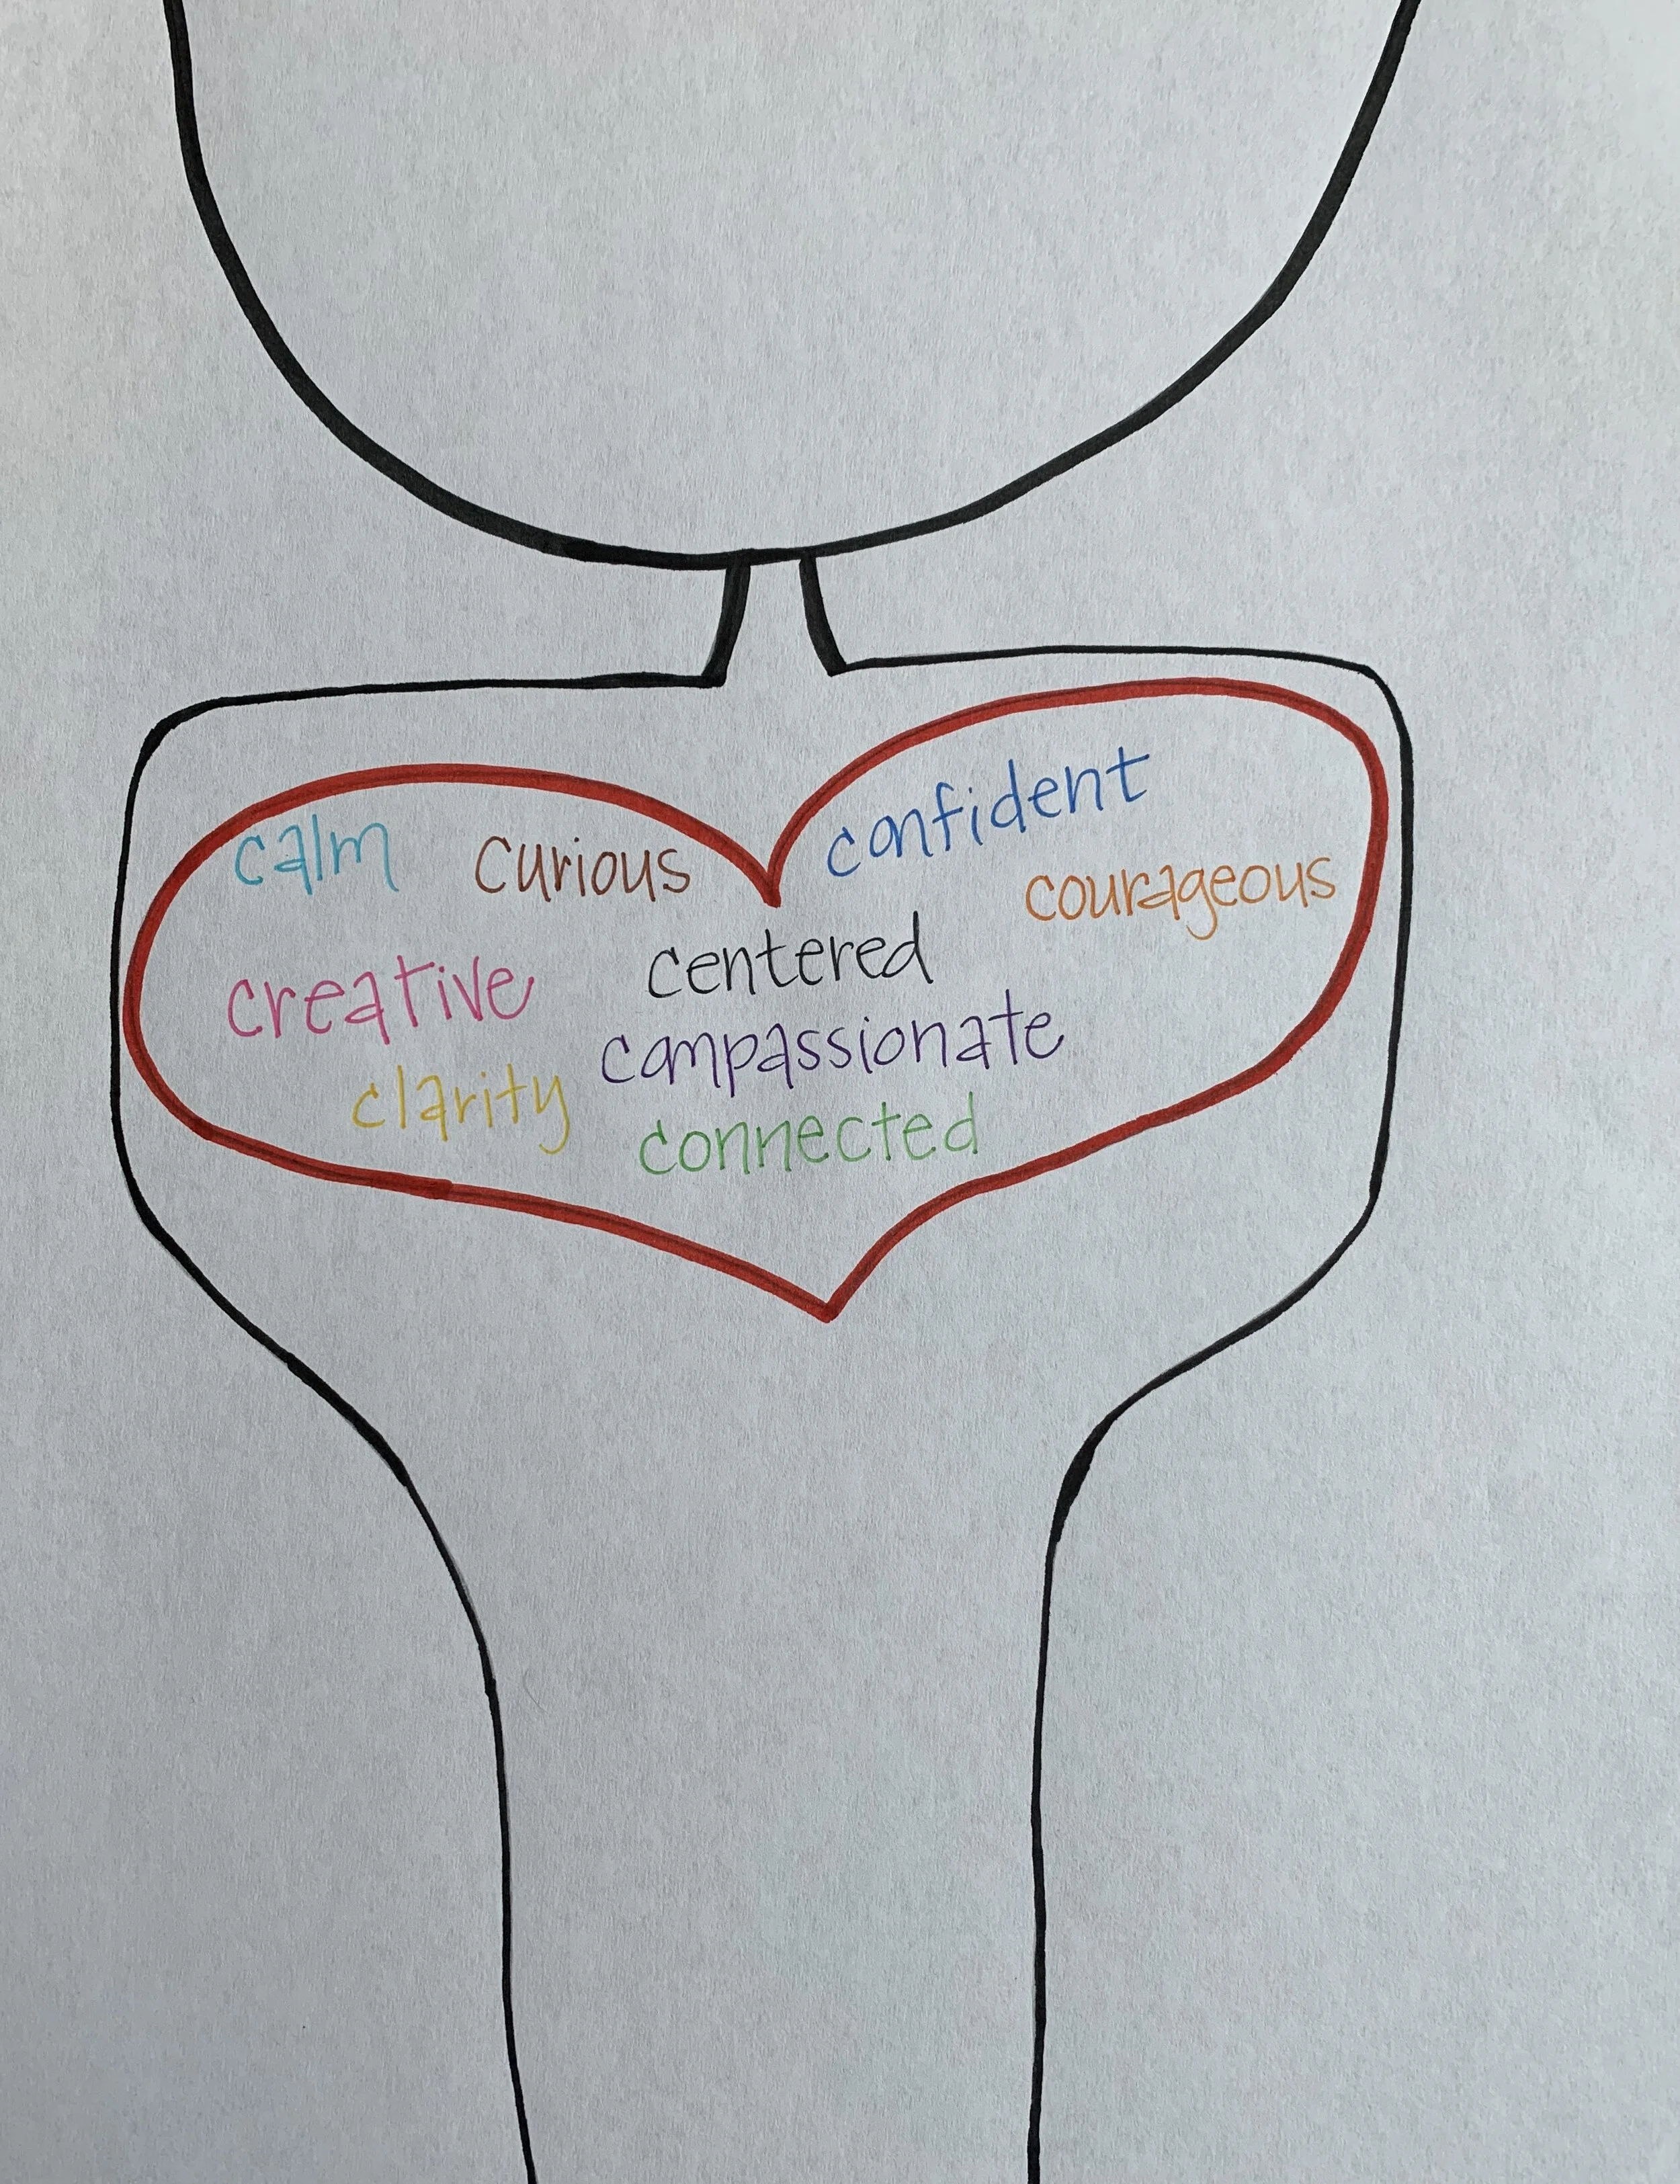 calm curious confident
courageous
creative centered
compassionate
clarity
connected